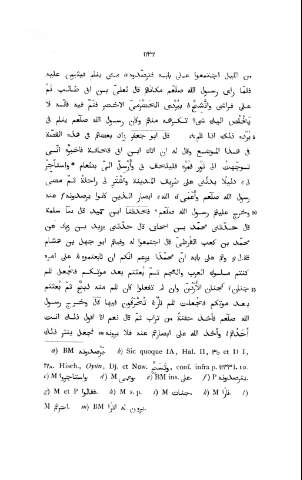 ١٢٣٢
من الليل اجتمعوا على بابه فترصّدوه a متى ينام فيثبون عليه
فلمّا رأى رسول الله صلّعم مكانهم قال لعلىّ بن ابى طالب نَمْ
على فراشى واتّشِحْ b ببُرْدى الحَضْرَمىّ الاخضر فنَمْ فيه فانّه لا
يخلص اليك شىء تكرهه منهم وكان رسول الله صلّعم ينام فى
بُرْده ذلك اذا نام قال ابو جعفر زاد بعضهم فى هذه القصّة
فى هذا الموضع وقال له ان اتاك ابن ابى قحافة فأَخْبِره أنّى
توجّهت الى ثور فمُرْه فليلحق بى وأَرْسِلْ الىّ بطعام واستأجِرْ
لى دليلا يدلّنى على طريق المدينة واشْتَرِ لى راحلة ثم مضى
رسول الله صلّعم وأَعْمَى الله ابصار الذين كانوا يرصدونه عنه
وخرج عليهم رسول الله صلّعم، فحدّثنا ابن حميد قال سا سلمة
قال حدّثنى محمّد بن اسحاق قال حدّثنى يزيد بن زياد عن
محمّد بن كعب القُرَظىّ قال اجتمعوا له وفيهم ابو جهل بن هشام
فقال وهم على بابه انّ محمّدا يزعم انّكم ان تابعتموه على امره
كنتم ملوك العرب والعجم ثم بُعثتم بعد موتكم فجُعل لكم
جنان كجنان الأُرْدُنّ وان لم تفعلوا كان لكم منه ذَبْح ثم بُعثتم
بعد موتكم فجُعلت لكم نار تُحْرَقون فيها قال وخرج رسول
الله صلّعم فأخذ حفنة من تراب ثم قال نعم انا اقول ذلك انت
أحدهم وأخذ الله على ابصارهم عنه فلا يرونه فجعل ينثر ذلك
a) BM يرصدونه. b) Sic quoque IA, Hal. II, ٣٥ et D I,
Hisch., Oyún, Dj. et Now. وتَسَجَّ, conf. infra p.